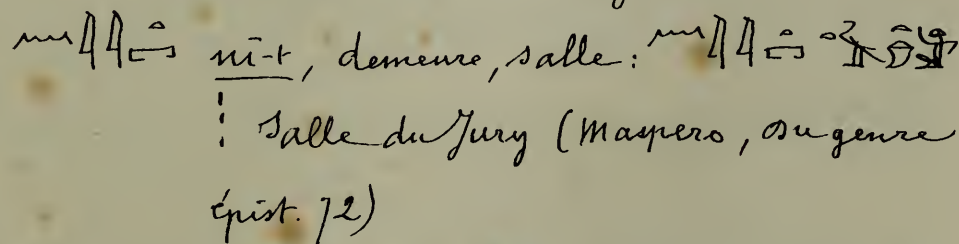 𓈖𓇋𓇋𓏏𓉐 nī-t, demeure, salle: 𓈖𓇋𓇋𓏏𓉐
Salle du Jury (Maspero, du genre
épist. 72)